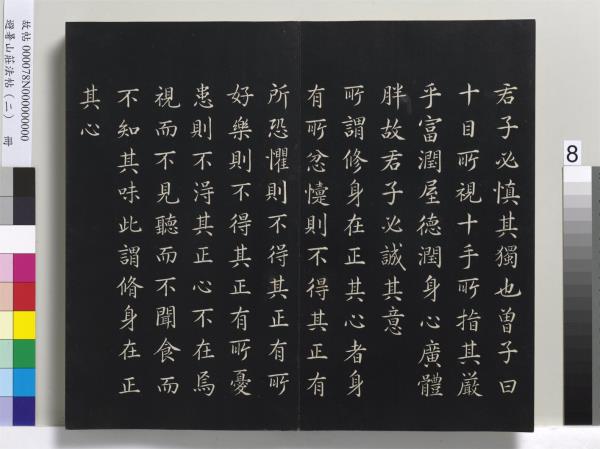 君子必慎其獨也曾子曰
十目所視十手所指其嚴
乎富潤屋德潤身心廣體
胖故君子必誠其意
所謂修身在正其心者身
有所忿懥則不得其正有
所恐懼則不得其正有所
好樂則不得其正有所憂
患則不得其正心不在焉
視而不見聽而不聞食而
不知其味此謂脩身在正
其心
故帖 000078N000000000
避暑山莊法帖(二) 冊
8